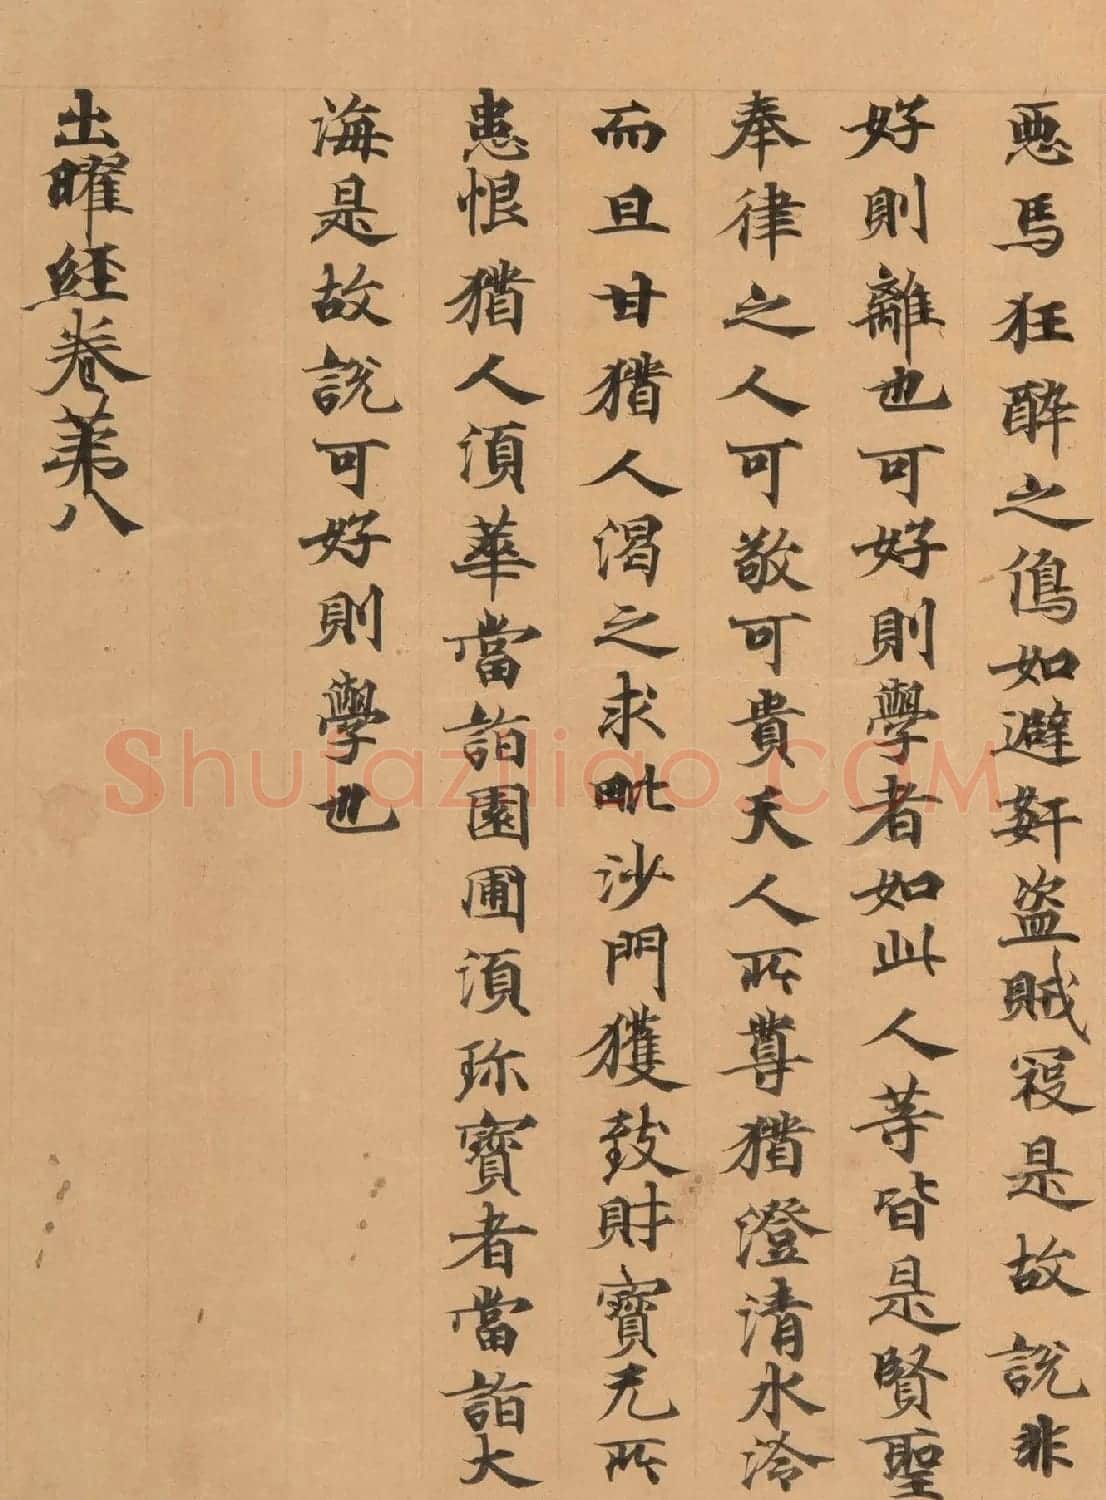 惡馬狂醉之傷如避姧盜賊役是故說非
好則離也可好則學者如此人等皆是賢聖
奉律之人可敬可貴天人所尊猶澄清水冷
而且甘猶人渴之求毗沙門獲致財寶无所
恚恨猶人須華當詣園圃須珎寶者當詣大
海是故說可好則學也
出曜経卷苐八
Shufaziliao.COM